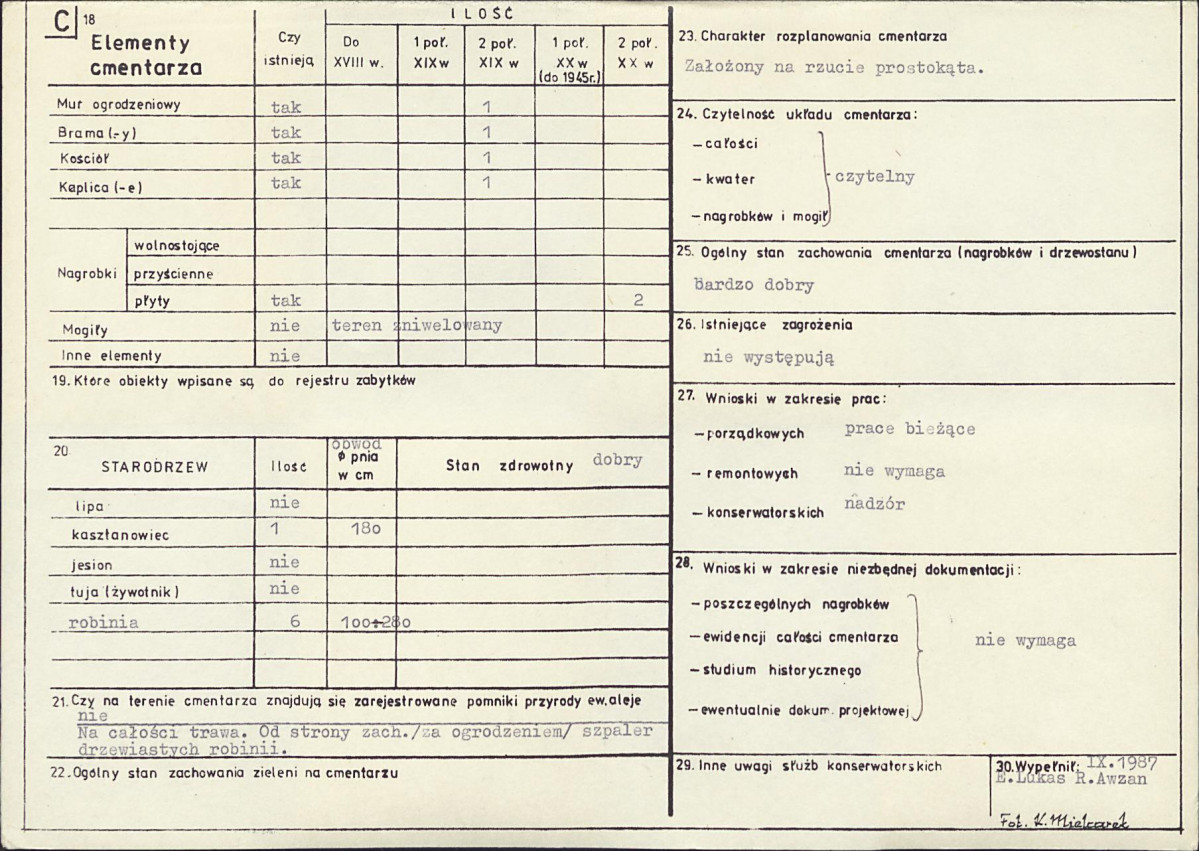 C 18
Elementy cmentarza
Czy istnieją
ILOŚĆ
Do XVIII w.
1 poł. XIX w
2 poł. XIX w
1 poł. XX w (do 1945r.)
2 poł. XX w
Mur ogrodzeniowy tak 1
Brama (-y) tak 1
Kościół tak 1
Kaplica (-e) tak 1
Nagrobki
wolnostojące
przyścienne
płyty tak 2
Mogiły nie teren zniwelowany
Inne elementy nie
19. Które obiekty wpisane są do rejestru zabytków
20. STARODRZEW Ilość obwód ø pnia w cm Stan zdrowotny dobry
lipa nie
kasztanowiec 1 180
jesion nie
tuja (żywotnik) nie
robinia 6 100÷280
21. Czy na terenie cmentarza znajdują się zarejestrowane pomniki przyrody ew. aleje
nie
Na całości trawa. Od strony zach./za ogrodzeniem/ szpaler
drzewiastych robinii.
22. Ogólny stan zachowania zieleni na cmentarzu
23. Charakter rozplanowania cmentarza
Założony na rzucie prostokąta.
24. Czytelność układu cmentarza:
– całości
– kwater czytelny
– nagrobków i mogił
25. Ogólny stan zachowania cmentarza (nagrobków i drzewostanu)
bardzo dobry
26. Istniejące zagrożenia
nie występują
27. Wnioski w zakresie prac:
– porządkowych prace bieżące
– remontowych nie wymaga
– konserwatorskich nadzór
28. Wnioski w zakresie niezbędnej dokumentacji:
– poszczególnych nagrobków
– ewidencji całości cmentarza nie wymaga
– studium historycznego
– ewentualnie dokum. projektowej
29. Inne uwagi służb konserwatorskich
30. Wypełnił: IX.1987
E.Lukas R.Awzan
Fot. K. Mielcarek